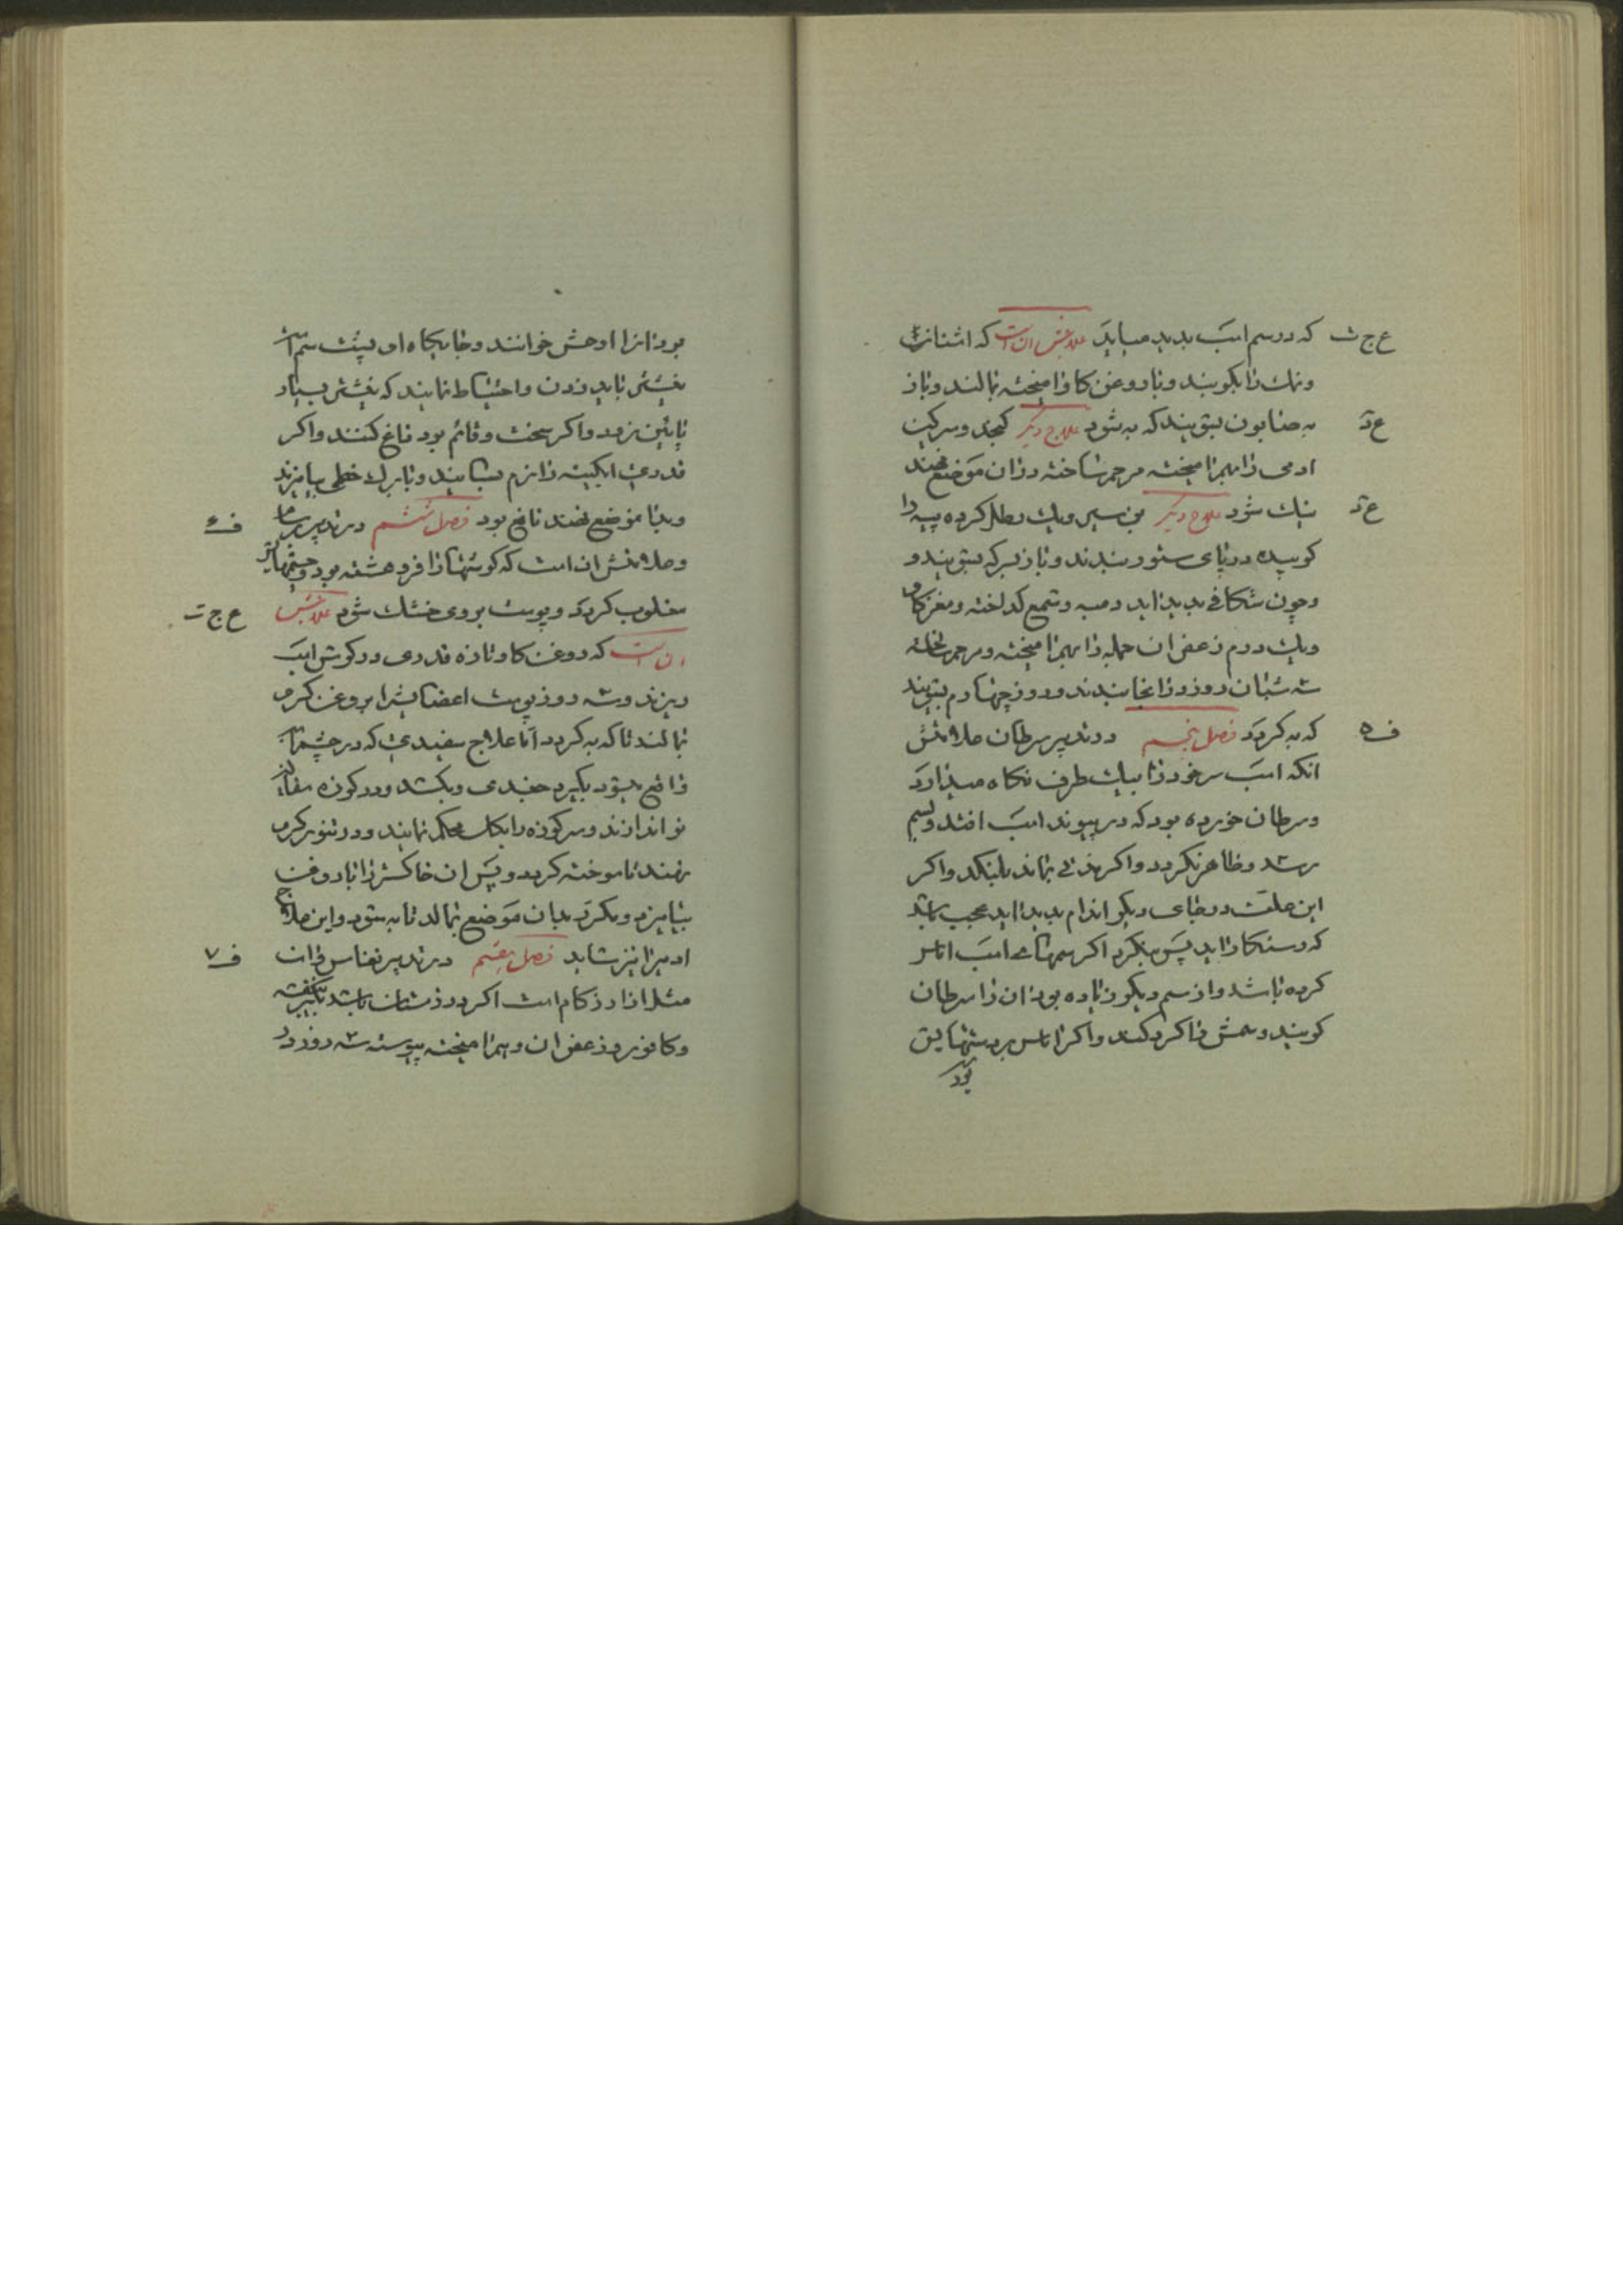 ع ج ث که در سم اسب بدید میاید علاجش ان است که اشنان
و نمک را بکوبند و با روغن کاو امیخته بمالند و باز
به صابون بشویند که به شود علاج دیکر کنجد و سرکین
ادمی را بهم امیخته مرهم ساخته در ان موضع نهند
نیک شود علاج دیکر من سیر و یک رطل کرده پیه را
کوبیده در پای ستور بندند و باز بسرکه بشویند و
و چون شکافی بدید اید دمبه و شمع کداخته و مغز کاو
و یک درم زعفران جمله را بهم امیخته و مرهم ساخته
سه شبان روز در انجا بندند و روز چهارم بشویند
که به کردد فصل پنجم در تدبیر سرطان علامتش
انکه اسب سر خود را بیک طرف نکاه میدارد
و سرطان خورده بود که در پیوند اسب افتد و بسم
رسد و ظاهر نکردد و اکر مدتی بماند بلنکد و اکر
این علت در جای دیکر اندام بدید اید عجیب باشد
که دستکار اید پس بنکرد اکر سمهای اسب اماس
کرده باشد و از سم دیکر زیاده بود ان را سرطان
کویند و سمش را کرد کند و اکر اماس بر دستهایش
بود
بود انرا اوحش خوانند و جایکاه او پشت سم است
نیشتر باید زدن و احتیاط نمایند که نیشتر بسیار
پائین نرود و اکر سخت و قائم بود داغ کنند و اکر
قدری ابکینه را نرم بسایند و با برک خطمی بیامیزند
و بدان موضع نهند نافع بود فصل ششم در تدبیر
ف ۶
و علامتش ان است که کوشها را فرو هشته بود و چشمهایش
مغلوب کردد و پوست بروی خشک شود علاجش
ع ج ت
ان است که روغن کاو تازه قدری در کوش اسب
ریزند و سه روز پوست اعضایش را بروغن کرم
بمالند تا که به کردد اما علاج سفیدی که در چشم
واقع بشود بکیرد جغدی و بکشد و در کوزه سفالین
نو اندازند و سر کوزه را بکل محکم نمایند و در تنور کرم
نهند تا سوخته کردد و پس ان خاکستر را با روغن
بیامیزد و بکرد بدان موضع بمالد تا به شود و این علاج
ادمیرا نیز شاید فصل هفتم در تدبیر نفاس و ان
ف ۷
مثل ازار زکام است اکر در زمستان باشد بکیر بنفشه
و کافور و زعفران و بهم امیخته پیوسته سه روز در
ع د
ع د
ف ه